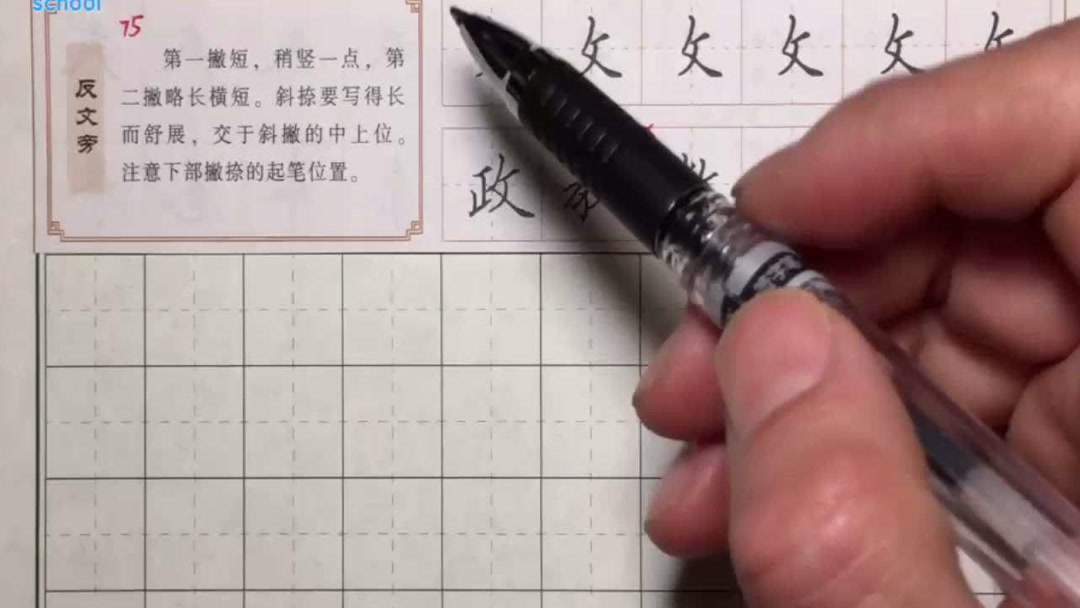 school
75
反文旁
第一撇短，稍竖一点，第
二撇略长横短。斜捺要写得长
而舒展，交于斜撇的中上位。
注意下部撇捺的起笔位置。
攵 攵 攵 攵 攵
政